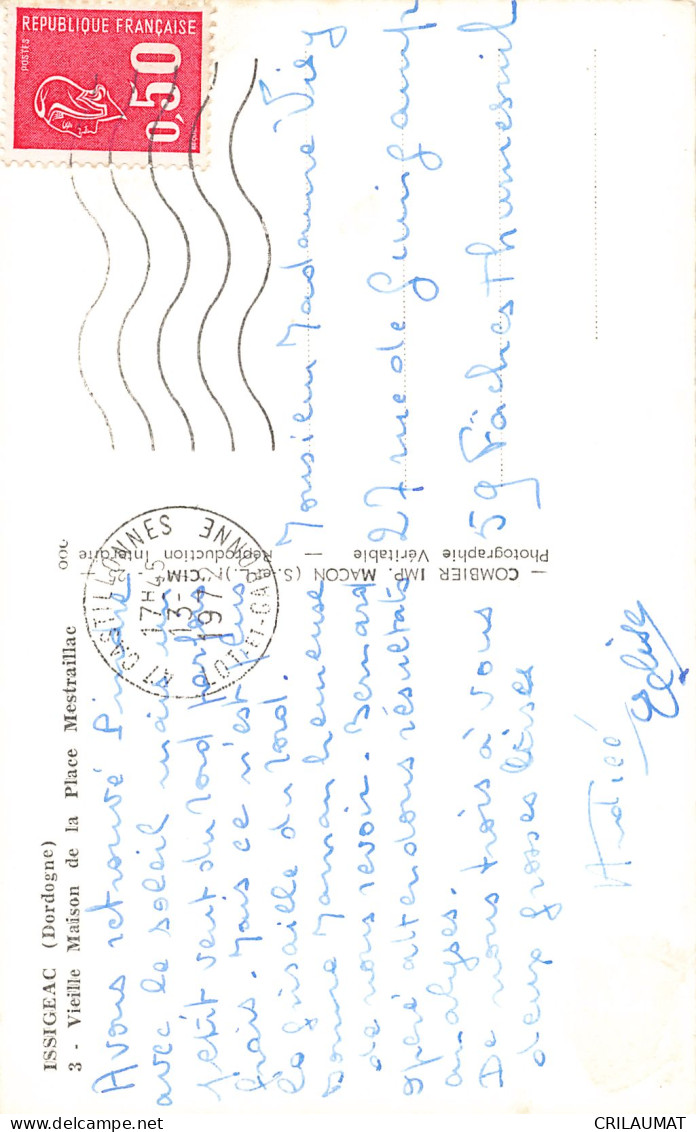 ISSIGEAC (Dordogne)
3 - Vieille Maison de la Place Mestraillac
Avons retrouvé
avec le soleil mais un
petit vent du Nord parfois
frais. Mais ce n'est plus
la grisaille du Nord.
Bonne Maman heureuse
de nous revoir. Bernard
opéré attendons résultats
analyses.
De nous trois à vous
deux grosses bises
COMBIER IMP. MACON (S.-et-L.) "CIM"
Photographie Véritable — Reproduction Interdite
REPUBLIQUE FRANÇAISE
POSTES
0,50
17H45
13-
1972
LOT-ET-GARONNE
Monsieur Madame
27 rue de Guingamp
59 Faches Thumesnil
CRILAUMAT